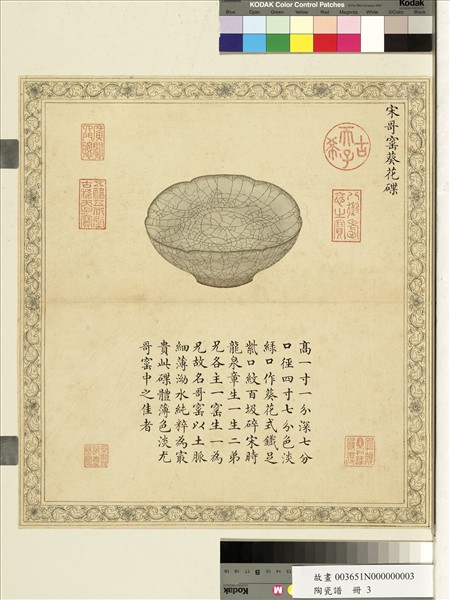 KODAK Color Control Patches
Kodak
Blue
Cyan
Green
Yellow
Red
Magenta
White
3/Color
Black
宋哥窑葵花碟
古
希
天子
八徵耄
念之寶
五福五代堂
古稀天子寶
高一寸一分深七分
口徑四寸七分色淡
綠口作葵花式鐵足
紫口紋百圾碎宋時
龍泉章生一生二弟
兄各主一窑生一為
兄故名哥窑以土脈
細薄泑水純粹為㝡
貴此碟體薄色淡尤
哥窑中之佳者
B
M
故畫 003651N000000003
陶瓷譜 冊 3